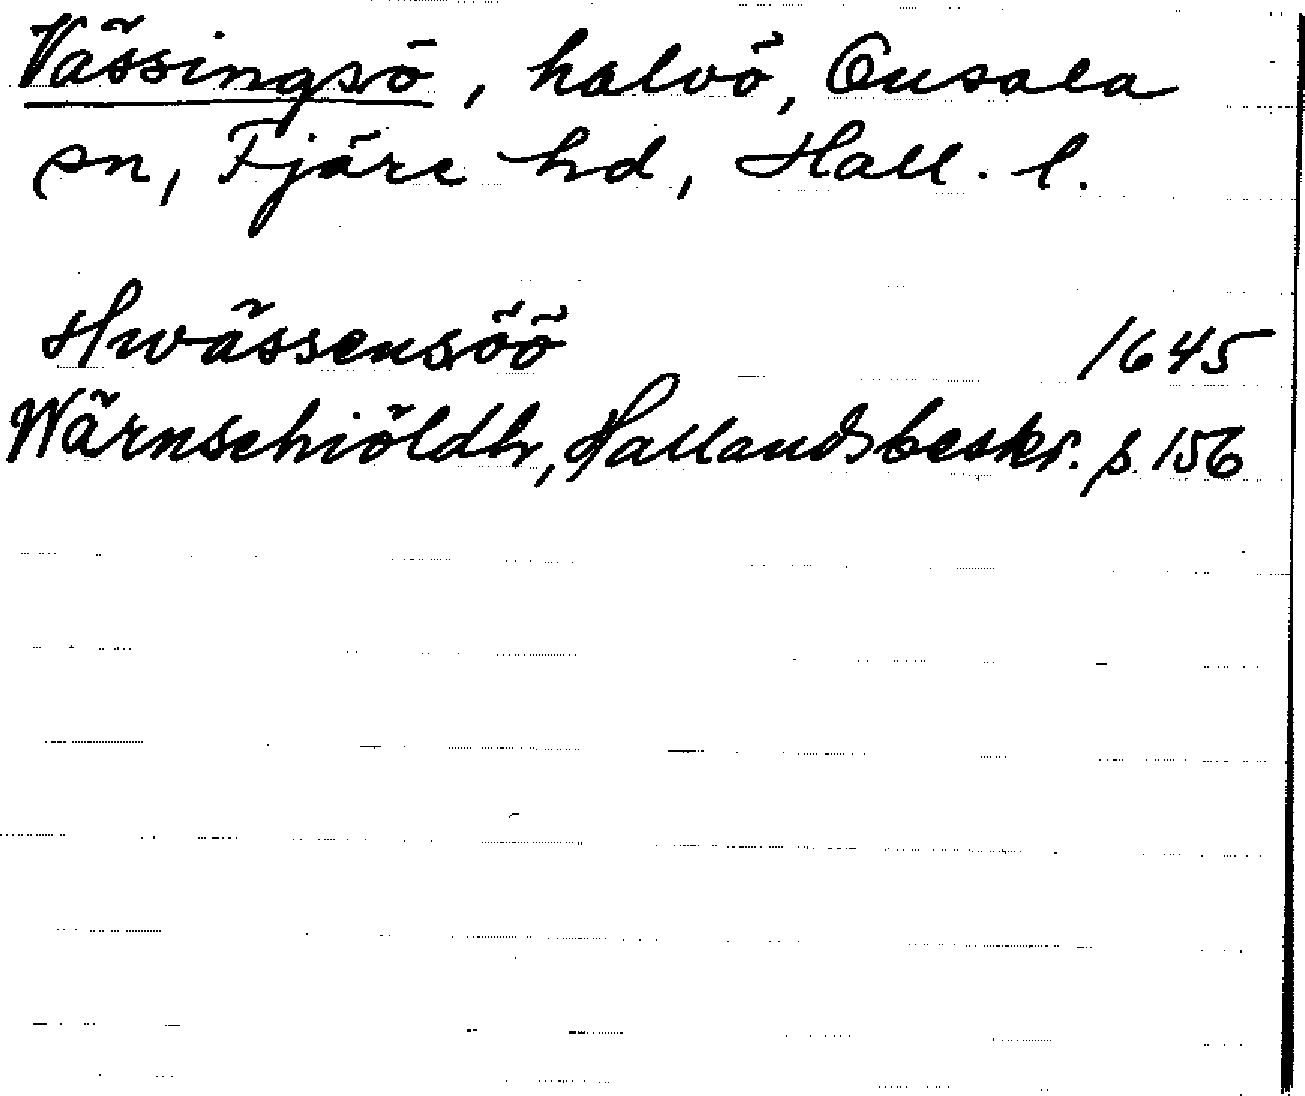 Vässingsö, halvö, Onsala
sn, Fjäre hd, Hall. l.
Hwässensöö 1645
Wärnschiöldh, Hallandsbeskr. s. 156